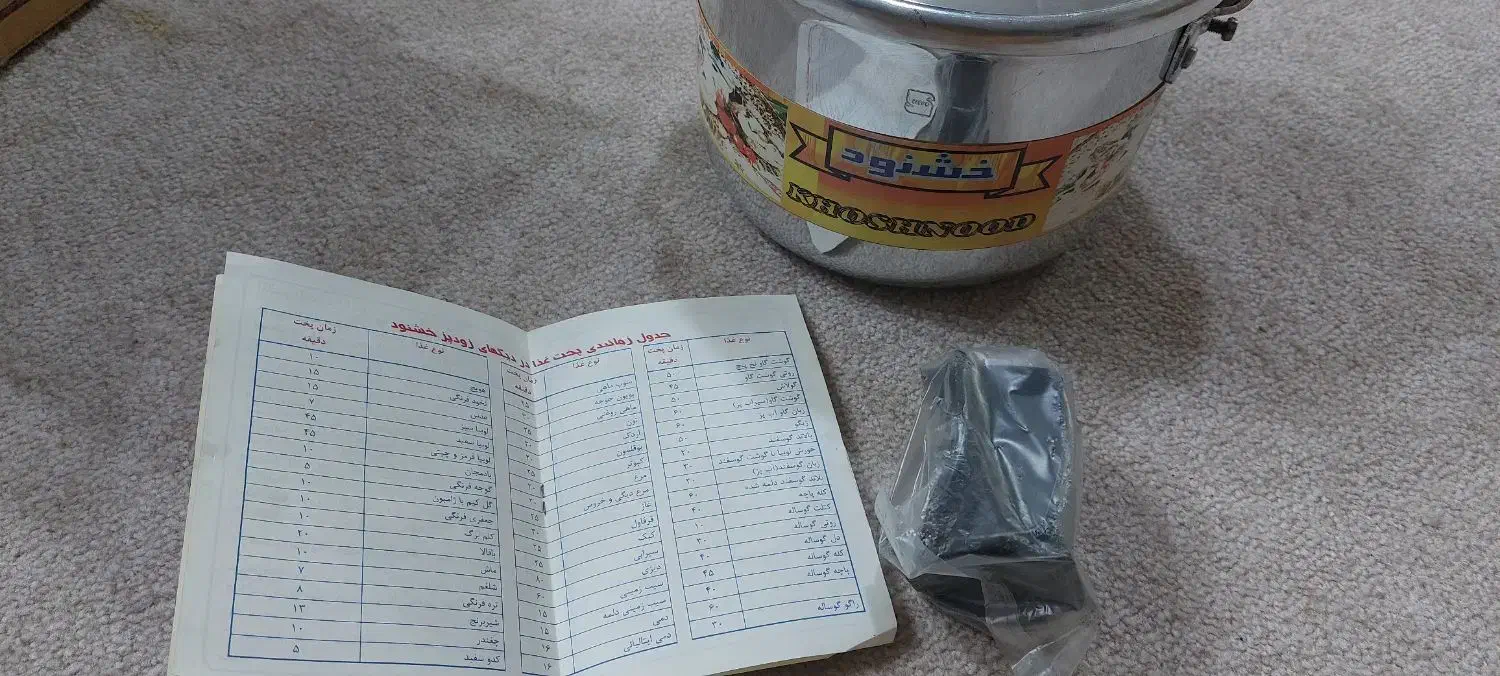 خشنود
KHOSHNOOD
جدول زمانبندی پخت غذا در دیگهای زودپز خشنود
نوع غذا
زمان پخت
دقیقه
گوشت گاو نخ پیچ ۵۰
روتی گوشت گاو ۴۵
گولاش ۵۰
گوشت گاو (سیراب پز) ۶۰
زبان گاو آب پز ۶۰
ژیگو ۵۰
بالاتد گوسفند ۲۰
خورش لوبیا با گوشت گوسفند ۳۰
زبان گوسفند (آب پز) ۳۰
بالاتد گوسفند دلمه شده ۶۰
کله پاچه ۴۰
کتلت گوساله ۱۰
روتی گوساله ۳۰
دل گوساله ۴۰
کله گوساله ۴۵
پاچه گوساله ۴۰
۶۰
راگو گوساله ۳۰
نوع غذا
زمان پخت
دقیقه
سوپ ماهی ۱۵
بویون جوجه
ماهی روغنی ۲۵
اردک
بوقلمون
کبوتر
مرغ
مرغ دیگی و خروس
غاز
قرقاول
کبک
سیرابی
دیزی ۸۰
سیب زمینی ۶۰
سیب زمینی دلمه ۱۵
دمی ۱۵
دمی ایتالیائی ۱۶
۱۶
نوع غذا
زمان پخت
دقیقه
هویج ۱۰
نخود فرنگی ۱۵
عدس ۱۵
لوبیا سبز ۷
لوبیا سفید ۴۵
لوبیا قرمز و چیتی ۴۵
بادمجان ۱۰
گوجه فرنگی ۵
گل کلم یا ژامبون ۱۰
جعفری فرنگی ۱۰
کلم برگ ۱۰
باقالا ۲۰
ماش ۱۰
شلغم ۷
تره فرنگی ۸
شیربرنج ۱۳
چغندر ۱۰
کدو سفید ۵